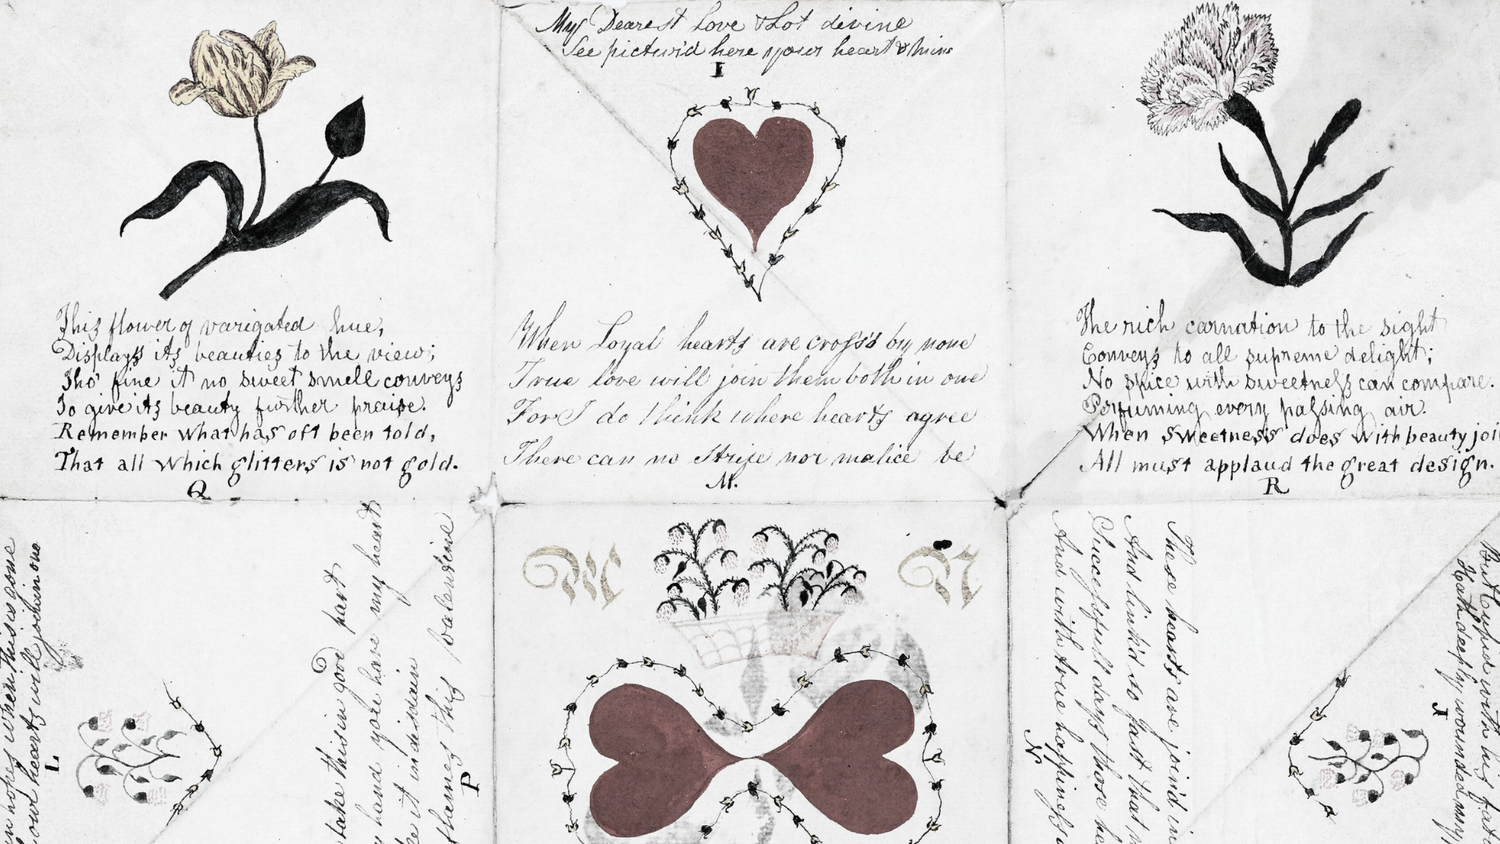 My Dearest Love & Lot divine
See pictur'd here your heart & mine
I
This flower of varigated hue,
Displays its beauties to the view;
Tho' fine it no sweet smell conveys
To give its beauty further praise.
Remember what has oft been told,
That all which glitters is not gold.
Q
When Loyal hearts are cross'd by none
True love will join them both in one
For I do think where hearts agree
There can no strife nor malice be
M.
The rich carnation to the sight
Conveys to all supreme delight;
No spice with sweetness can compare.
Perfuming every passing air.
When sweetness does with beauty joi
All must applaud the great design.
R
hopes when this is done
our hearts will join in one
L
take this in good part
hand you have my heart
it in disdain
this valentine
P
M
N
These hearts are joind in
And link'd so fast that
Successfull days those
And with true happiness
N
But Cupid with his
Hath deeply wounded my
J